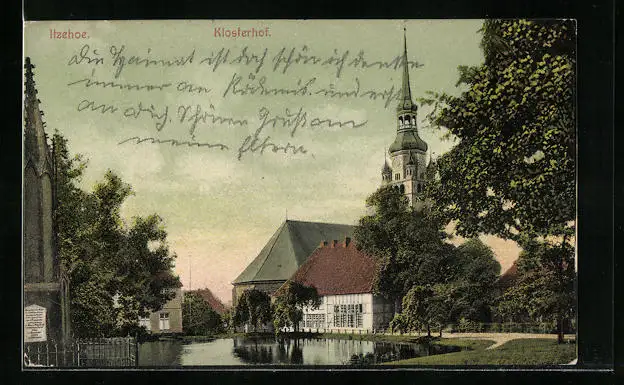 Itzehoe. Klosterhof.
die Heimat ist doch schön ich denke
immer an Rödemis. und erst
an dich Schönen Gruß am
meine Eltern.